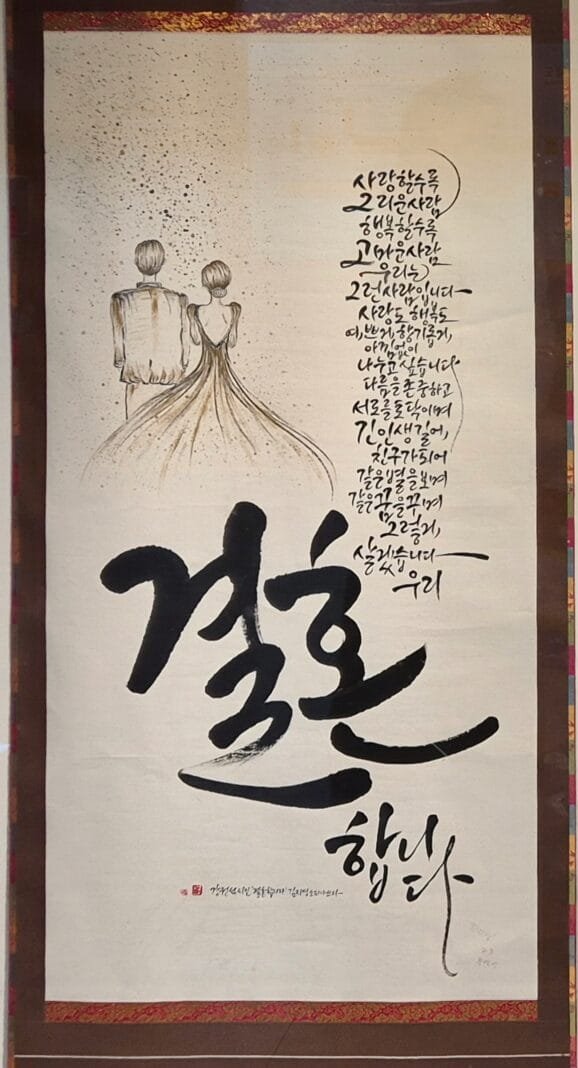 사랑할수록
그리운사람
행복할수록
고마운사람
우리는
그런사람입니다
사랑도 행복도
예쁘게 향기롭게,
아낌없이
나누고 싶습니다
다름을 존중하고
서로를 토닥이며
긴 인생길에,
친구가 되어
같은 별을 보며
같은 꿈을 꾸며
그렇게,
살겠습니다
우리
결혼
합니다